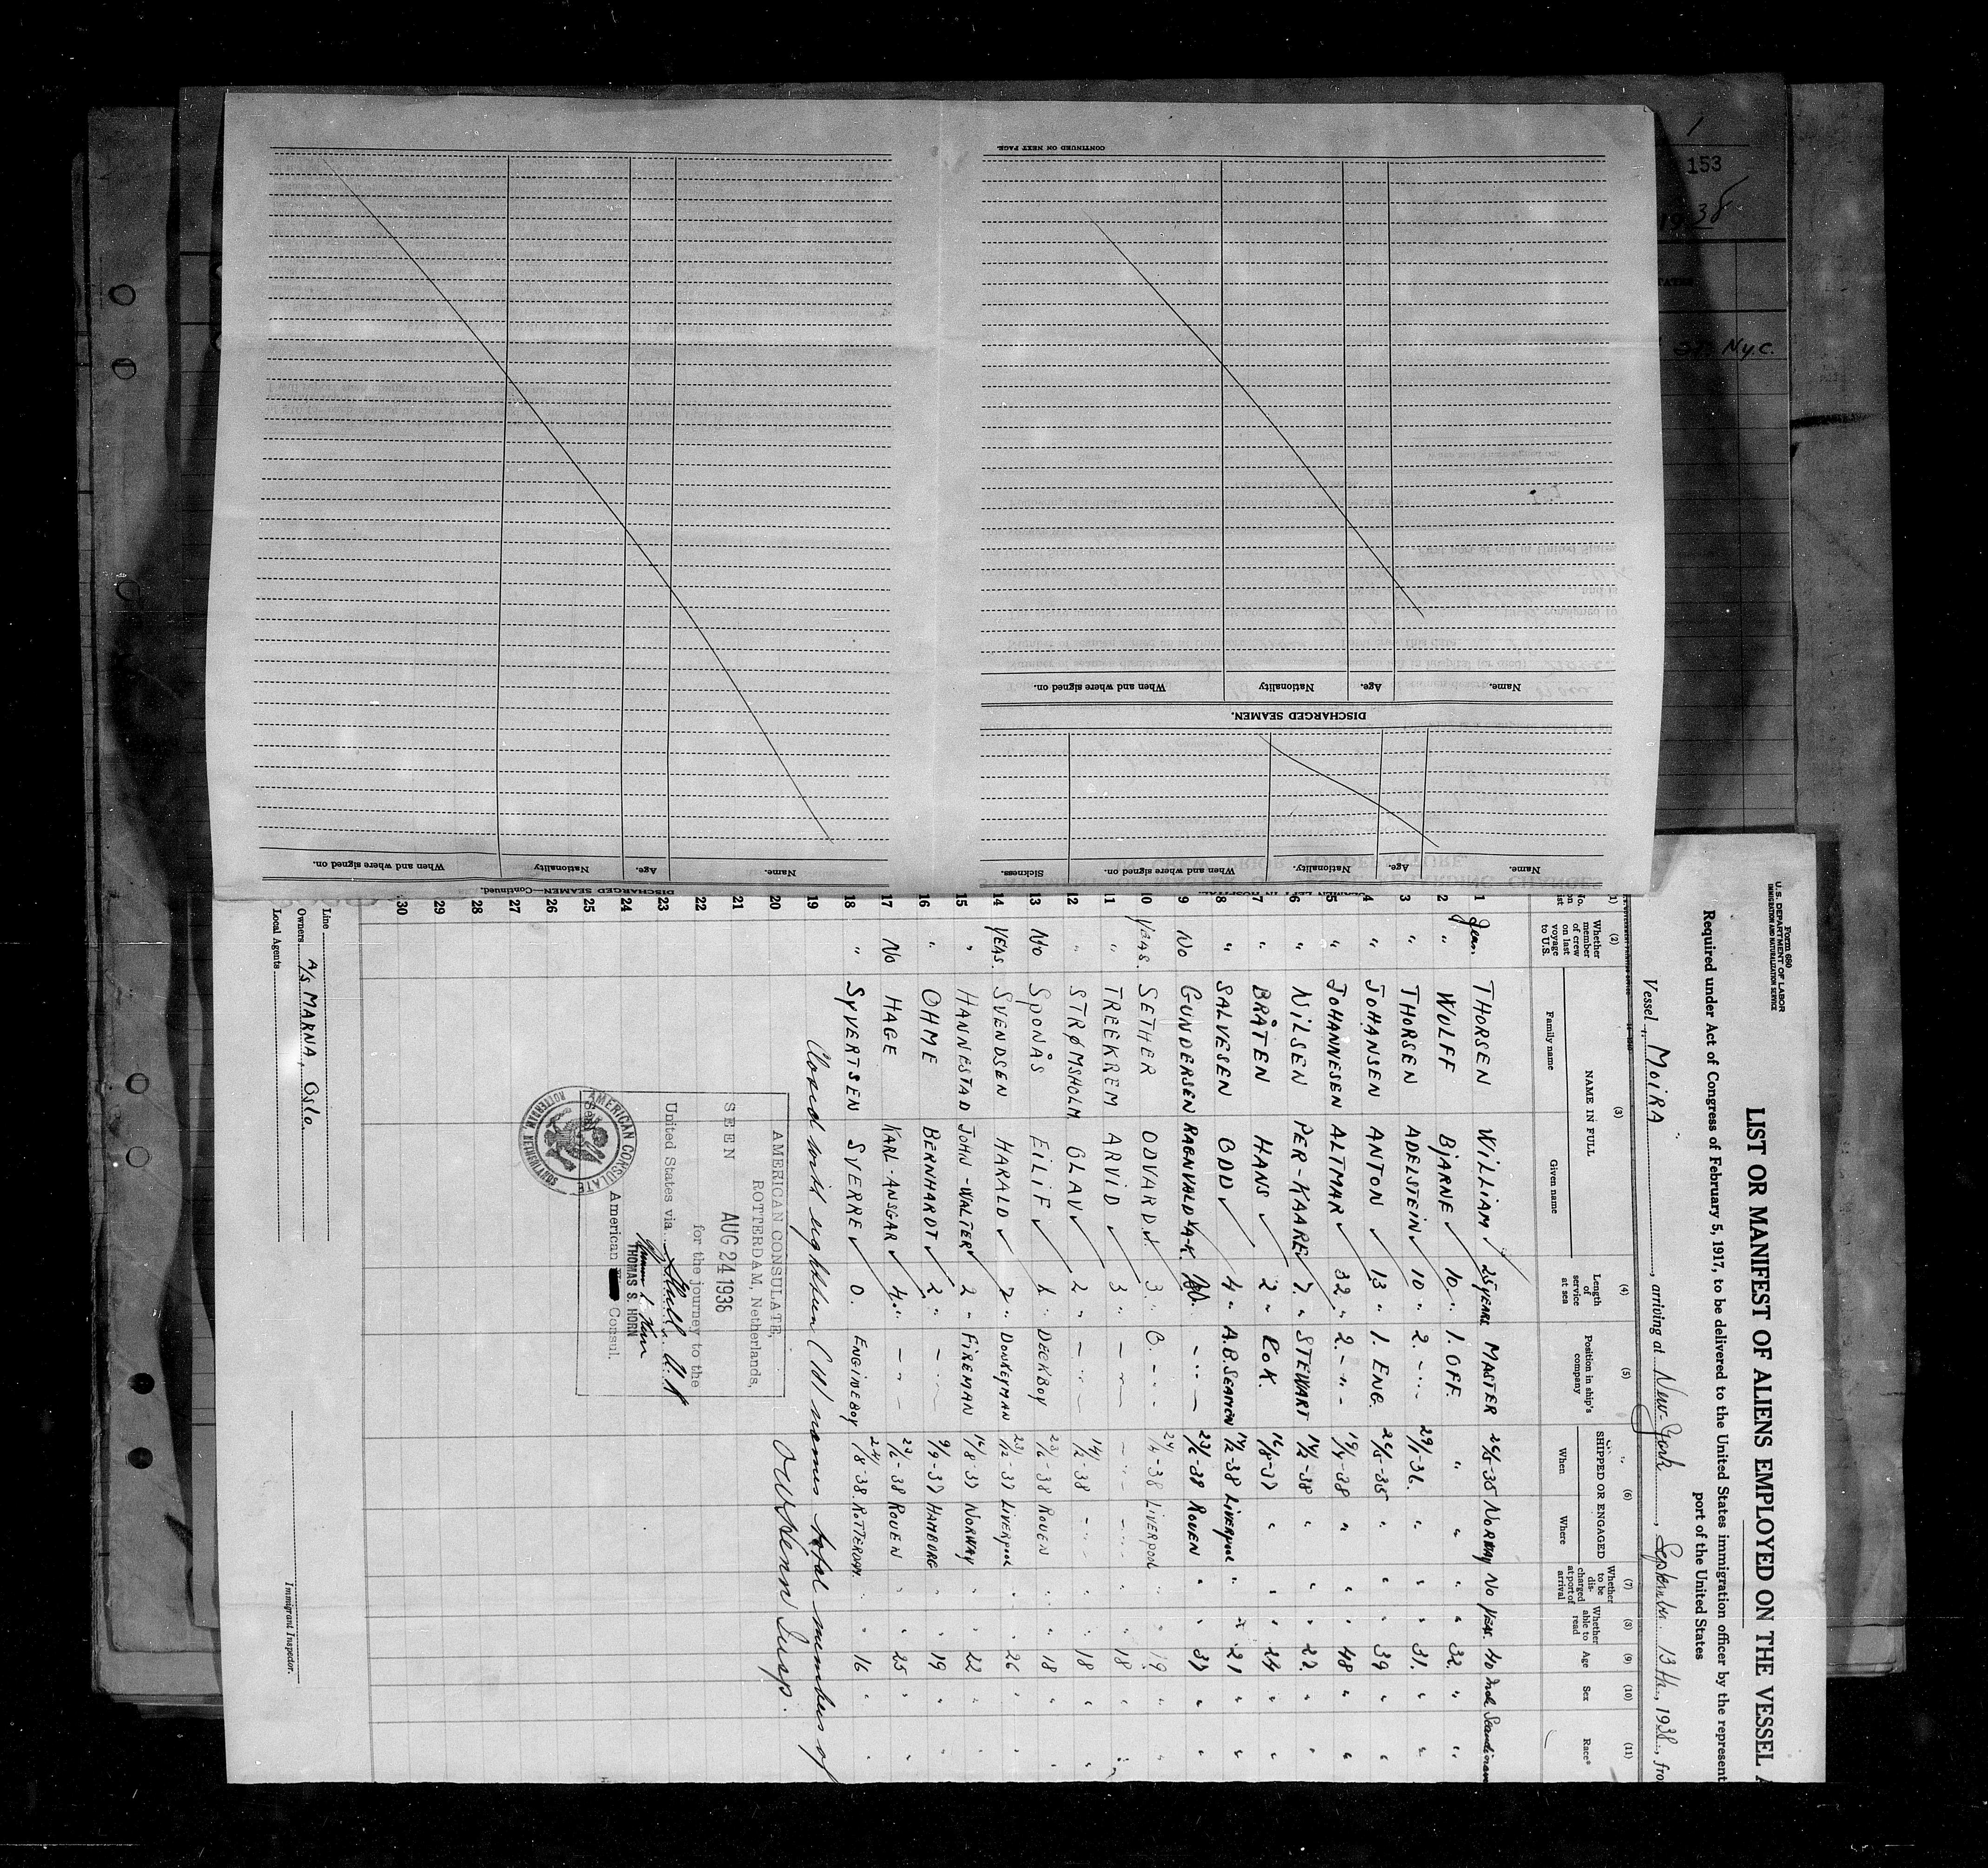 Form 680
U.S. DEPARTMENT OF LABOR
IMMIGRATION AND NATURALIZATION SERVICE
LIST OR MANIFEST OF ALIENS EMPLOYED ON THE VESSEL
Required under Act of Congress of February 5, 1917, to be delivered to the United States immigration officer by the represent
port of the United States
Vessel MOIRA, arriving at New-York, September 13th, 1938, fro
(2) (3) (4) (5) (6) (7) (8) (9) (10) (11)
Whether member of crew on last voyage to U.S.
NAME IN FULL
Family name Given name
Length of service at sea
Position in ship's company
SHIPPED OR ENGAGED
When Where
Whether to be discharged at port of arrival
Whether able to read
Age
Sex
Race*
1 THORSEN WILLIAM 25 YEARS MASTER 24/5-35 NORWAY No Yes. 40 Male
2 " WULFF BJARNE 10 " 1. OFF. " " " " 32 " "
3 " THORSEN ADELSTEIN 10 " 2. - " - 29/1-36. " " " 31. " "
4 " JOHANSEN ANTON 13 " 1. ENG. 24/5-35 " " " 39 " "
5 " JOHANNESEN ALTMAR 32 " 2. - " - 19/4-38 " " " 48 " "
6 " NILSEN PER-KAARE 7. " STEWART 14/2-38 " " " 22. " "
7 " BRÅTEN HANS 2 " KOK. 16/8-37 " " " 24 " "
8 " SALVESEN ODD 4 " A.B. SEAMAN 14/2-38 LIVERPOOL " " 21 " "
9 No GUNDERSEN RAGNVALD - " - 23/6-38 ROUEN " " 37 " "
10 YEAS. SETHER ODVARD 3 " O. - " - 24/4-38 LIVERPOOL " " 19. " "
11 " TREEKREM ARVID 3 " - " - - " - - " - " " 18 " "
12 " STRØMSHOLM OLAV 2 " - " - 14/2-38 - " - " " 18 " "
13 No SPONÅS EILIF 1 " DECKBOY 23/6-38 ROUEN " " 18 " "
14 YEAS. SVENDSEN HARALD 7 " DONKEYMAN 23/12-37 LIVERPOOL " " 26 " "
15 " HANNESTAD JOHN-WALTER 2 " FIREMAN 16/8-37 NORWAY " " 22 " "
16 " OHME BERNHARDT 2 " - " - 9/9-37 HAMBORG " " 19 " "
17 No HAGE KARL-ANSGAR 4 " - " - 23/6-38 ROUEN " " 25 " "
18 " SYVERTSEN SVERRE 0. ENGINEBOY 24/8-38. ROTTERDAM. " " 16 " "
19 Closed with eighteen (18) names total members of
20
21
22
23
24
25
26
27
28
29
30
AMERICAN CONSULATE,
ROTTERDAM, Netherlands,
SEEN AUG 24 1938
for the journey to the
United States via
THOMAS S. HORN
American Consul.
AMERICAN CONSULATE
ROTTERDAM, NETHERLANDS
Line
Owners A/S MARNA, Oslo
Local Agents
Immigrant Inspector.
Name. Age. Nationality. When and where signed on. Sickness.
DISCHARGED SEAMEN.
Name. Age. Nationality When and where signed on.
CONTINUED ON NEXT PAGE.
DISCHARGED SEAMEN—Continued.
Name. Age. Nationality When and where signed on.
153
1938
N.Y.C.